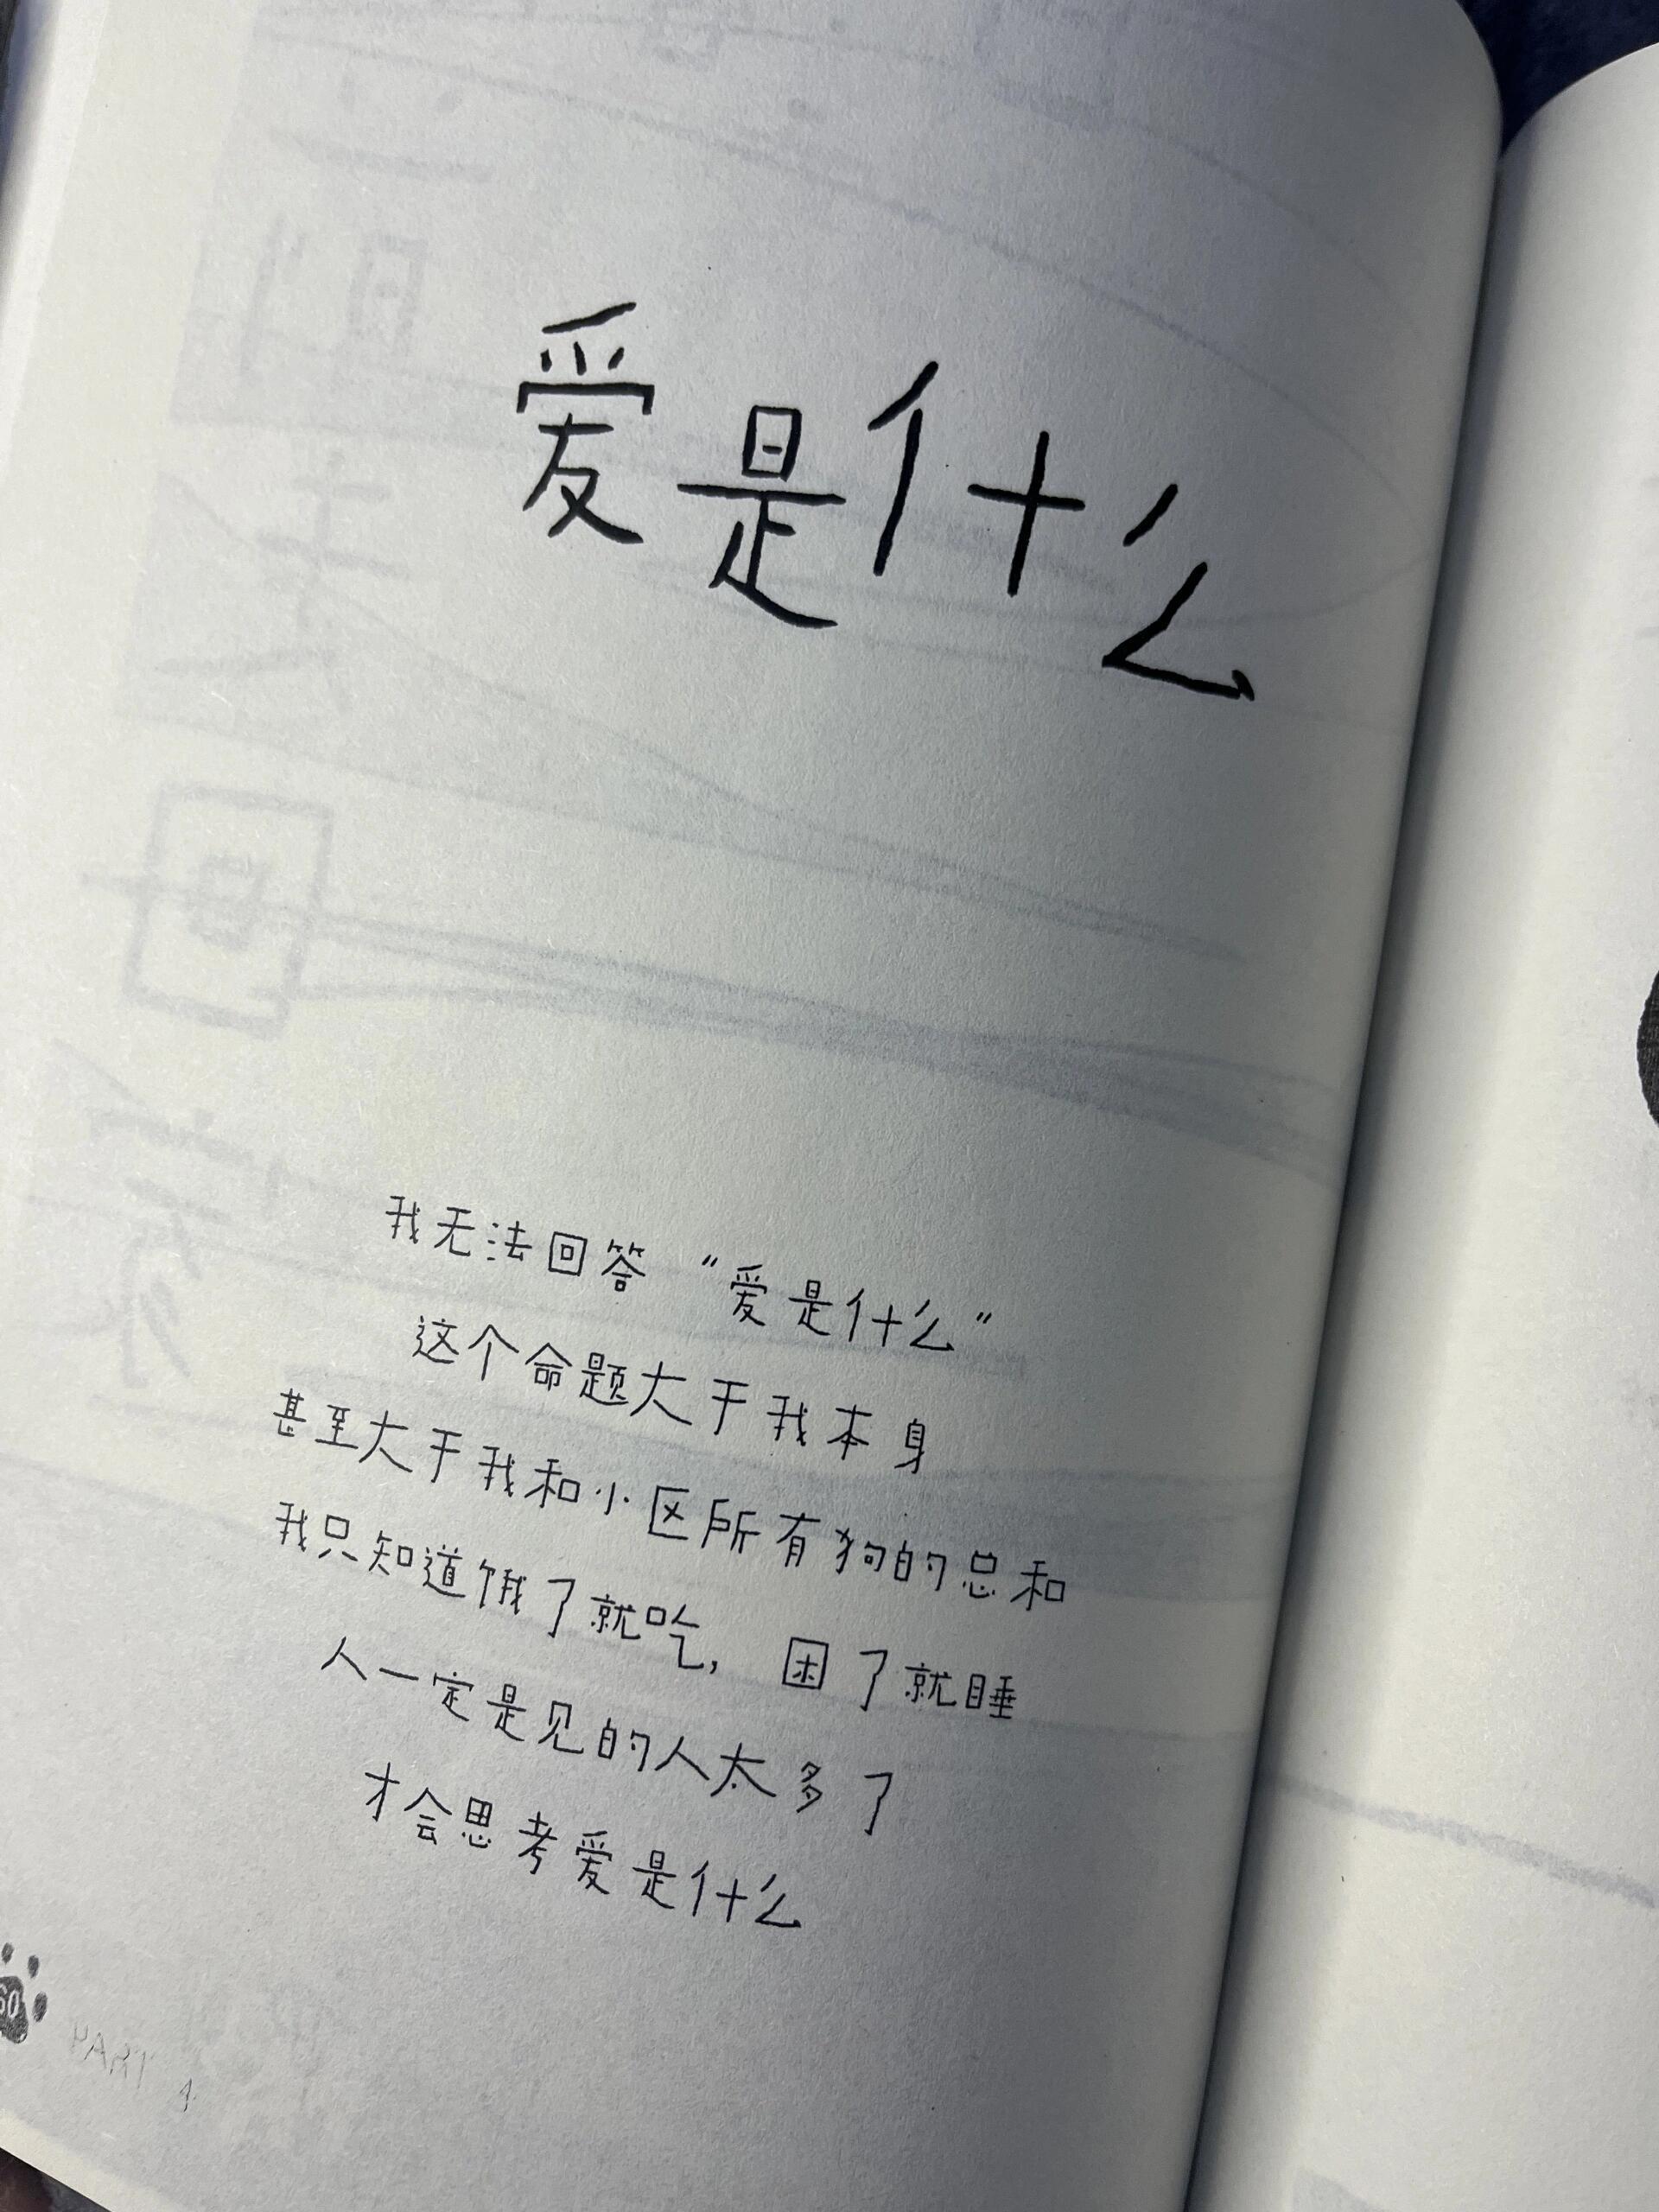 爱是什么
我无法回答“爱是什么”
这个命题大于我本身
甚至大于我和小区所有狗的总和
我只知道饿了就吃，困了就睡
人一定是见的人太多了
才会思考爱是什么